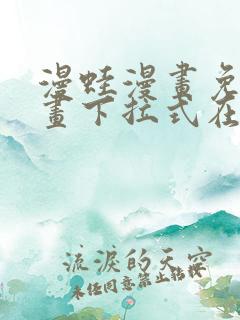 漫蛙漫畫免
畫下拉式在
流淚的天空
未經同意禁止轉載